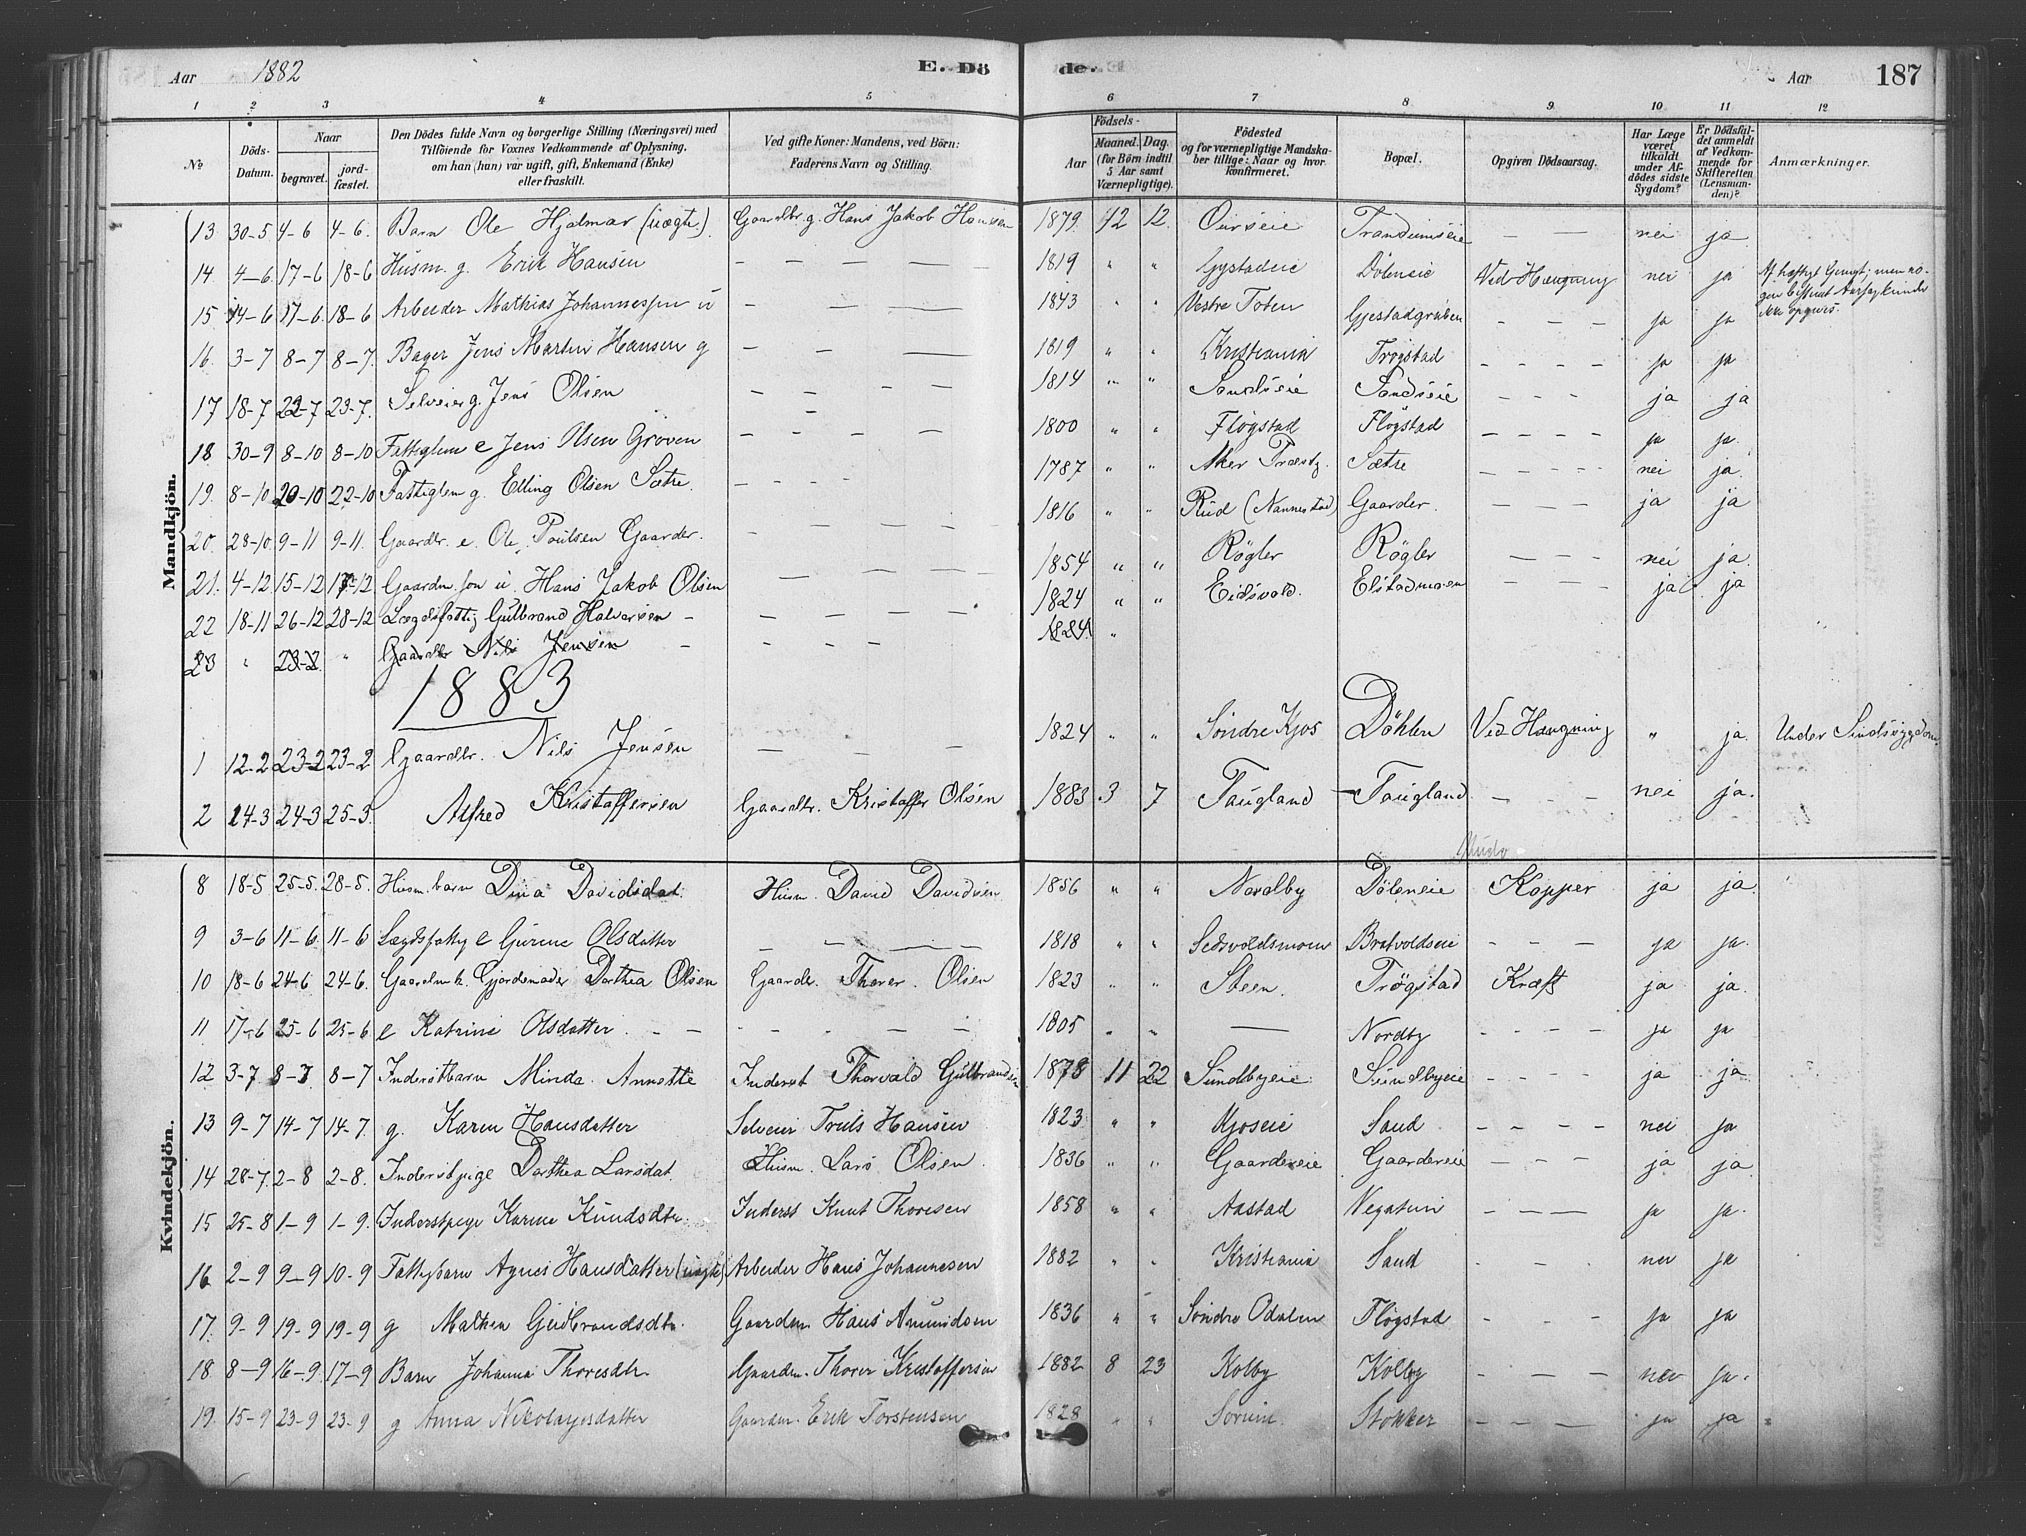 Aar 1882 E. Dö de. Aar 187
1 2 3 4 5 6 7 8 9 10 11 12
No Döds-Datum. Naar begravet. jord-fæstet. Den Dödes fulde Navn og borgerlige Stilling (Næringsvei) med Tilföiende for Voxnes Vedkommende af Oplysning, om han (hun) var ugift, gift, Enkemand (Enke) eller fraskilt. Ved gifte Koner: Mandens, ved Börn: Faderens Navn og Stilling. Födsels- Aar Maaned. Dag. (for Börn indtil 5 Aar samt Værnepligtige). Födested og for værnepligtige Mandskaber tillige: Naar og hvor konfirmeret. Bopæl. Opgiven Dödsaarsag. Har Læge været tilkaldt under Afdödes sidste Sygdom? Er Dödsfaldet anmeldt af Vedkommende for Skifteretten (Lensmanden)? Anmærkninger.
Mandkjön.
13 30-5 4-6 4-6. Barn Ole Hjalmar (uægte) Gaardbr. g. Hans Jakob Hansen 1879 12 12. Ourseie Trandumseie — — nei ja
14. 4-6 17-6 18-6 Husm. g. Erik Hansen — — — — 1819 " " Gystadeie Döleneie Ved Hængning nei ja
15 14-6 17-6 18-6 Arbeider Mathias Johannessen u — — — — 1843 " " Vestre Toten Gjestadgruben — — — ja ja
16. 3-7 8-7 8-7. Bager Jens Martin Hansen g — — — 1819 " " Kristiania Trøgstad — — — — ja ja
17 18-7 22-7 23-7. Selveier g. Jens Olsen — — — — 1814 " " Sandseie Sandseie — — — ja ja
18 30-9 8-10 8-10 Fattiglem e Jens Olsen Groven — — — — 1800 " " Fløgstad Fløgstad — — — — ja ja.
19. 8-10 20-10 22-10 Fattiglem g. Elling Olsen Sætre. — — — — 1787 " " Aker Præstg. Sætre — — — — nei ja
20. 28-10 9-11 9-11. Gaardbr. e. Ole Poulsen Gaarder. — — — — 1816 " " Rud (Nannestad) Gaarder. — — — ja ja
21. 4-12 15-12 17-12 Gaardm. søn u Hans Jakob Olsen — — — — 1854 " " Røgler Røgler — — — nei ja.
22 18-11 26-12 28-12 Lægdsfattig Gulbrand Halvorsen — — — — — 1824 " " Eidsvold. Elstadmoen — — — ja ja
23 " 23-2 " Gaardbr Nils Jensen — — — — 1824 "
1883
1 12-2 23-2 23-2 Gaardbr. Nils Jensen — — — — 1824 " " Söndre Kjos Döhlen Ved Hængning " ja. Under Sindssygdom.
2 14-3 24-3 25-3. Alfred Kristoffersen Gaardbr. Kristoffer Olsen 1883 3 7 Taugland — Taugland — — — nei ja.
Kvindekjön.
8 18-5 25-5. 28-5. Husm. barn Dina Davidsdat. Husm. David Davidsen 1856 " " Nordby Döleneie Kopper ja ja.
9 3-6 11-6. 11-6 Lægdsfattig e Gurine Olsdatter — — — — — 1818 " " Bratvoldseie — — — ja ja.
10 18-6 24-6 24-6. Gaardm. k. Gjordemoder Dorthea Olsen Gaardbr. Thorer Olsen 1823 " " Steen. Trögstad Kræft ja ja.
11 17-6 25-6 25-6 e Katrine Olsdatter. — — — — — — 1805 " " — Nordby — — — — ja ja
12 3-7 8-7. 8-7 Inderstbarn Minda Annette Inderst Thorvald Gulbrandsen 1878 11 22 Sundbyeie Sundbyeie — — — — ja ja
13 9-7 14-7 14-7. g. Karen Hansdatter Selveier Truls Hansen 1823 " " Kjoseie Sand — — — — nei ja
14 28-7. 2-8 2-8. Inderstpige Dorthea Larsdat. Husm. Lars Olsen. 1836 " " Gaardereie Gaardereie — — — ja ja
15 25-8 1-9 1-9. Inderstpige Karine Knudsdtr. Inderst Knut Thoresen 1858 " " Aastad Negstun — — — ja ja.
16 2-9 9-9 10-9 Fattigbarn Agnes Hansdatter (uægte) Arbeider Hans Johannesen 1882 " . Kristiania Sand . — . nei ja
17. 9-9 19-9 19-9 g Mathea Gudbrandsdtr. Gaardm. Hans Amundsen 1836 " " Söndre Odalen Fløgstad — — — ja ja
18. 8-9 16-9. 17-9 Barn Johanna Thoresdtr Gaardm. Thorer Kristoffersen 1882 8 23 Kolby Kolby — — — nei ja.
19. 15-9 23-9 23-9 g Anna Nikolaysdatter Gaardm. Erik Torstensen 1828 " " Sorum. Stokker — — — ja ja